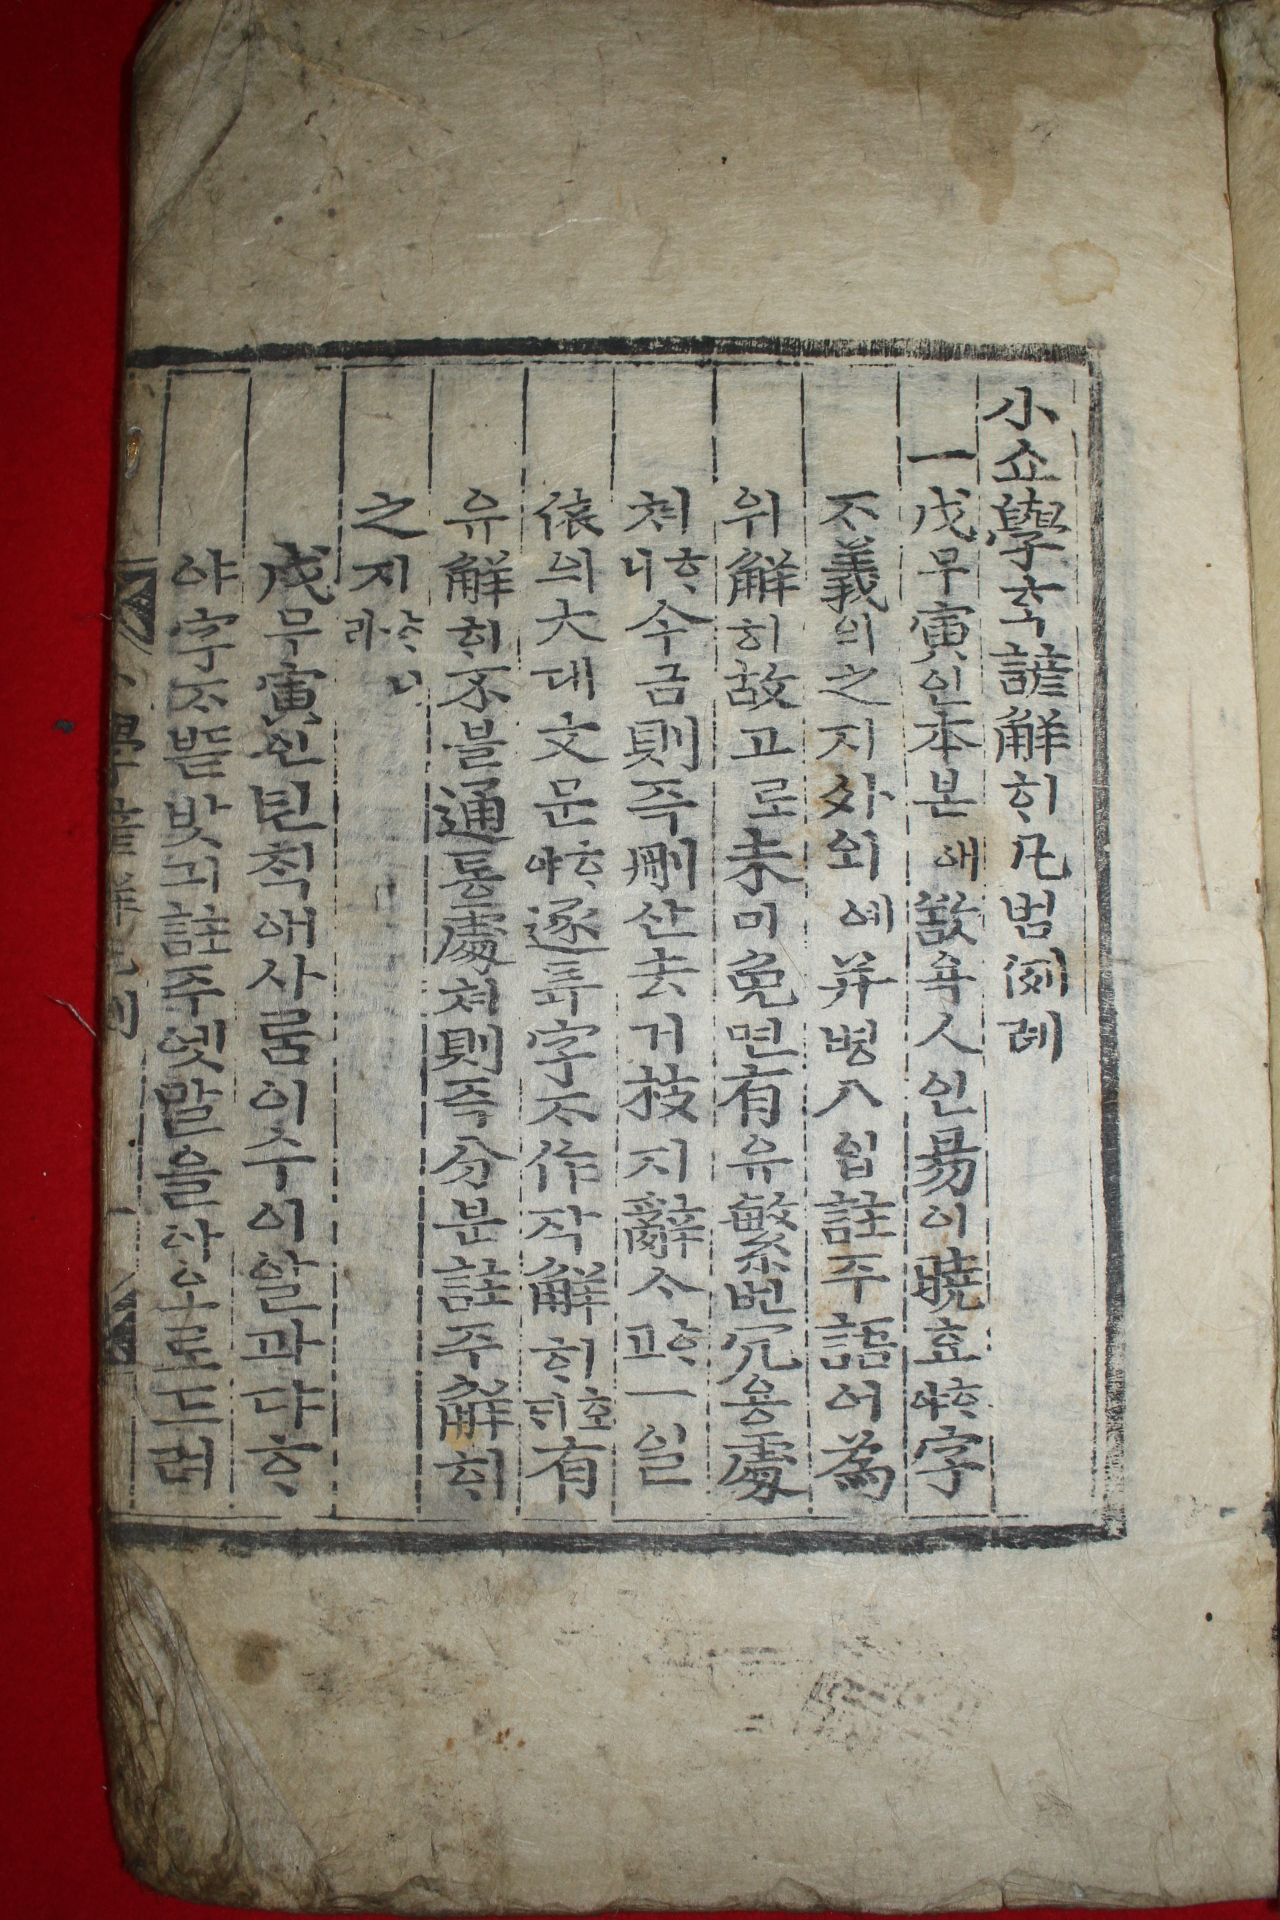 小쇼學ᄒᆞᆨ諺解ᄒᆡ凡범例례
一戊무寅인本본애欲욕人인易이曉효ᄒᆞ야字
ᄌᆞ義의之지外외예幷병入입註주語어爲
위解ᄒᆡ故고로未미免면有유繁번冗용處
쳐ᄒᆞ니今금則즉刪산去거枝지辭ᄉᆞᄒᆞ고一일
依의大대文문ᄒᆞ야逐튝字ᄌᆞ作작解ᄒᆡ호ᄃᆡ有
유解ᄒᆡ不블通통處쳐則즉分분註주解ᄒᆡ
之지ᄒᆞ니라
戊무寅인년칙애사ᄅᆞᆷ이수이알과댜ᄒᆞ
야字ᄌᆞᄠᅳᆮ밧긔註주엣말을아오로드려
小學諺解凡例 一